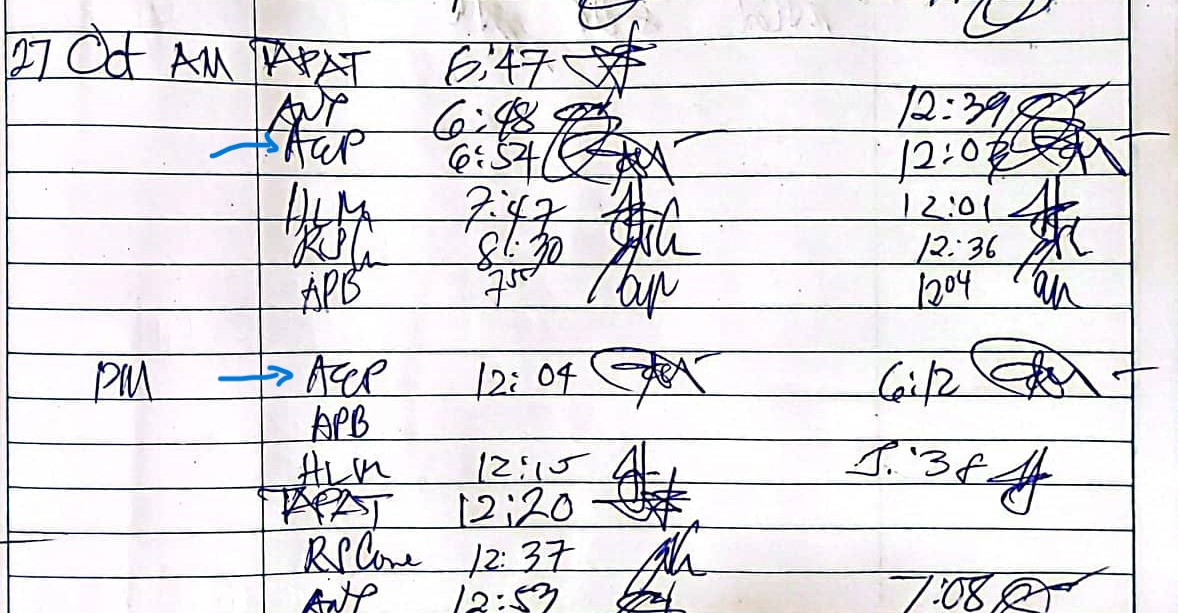 27 Oct AM TAPAT 6:47
ANP 6:48 12:39
ACCP 6:54 12:02
HLM 7:47 12:01
RSC 8:30 12:36
APB 7⁵⁵ 12⁰⁴
PM ACCP 12:04 6:12
APB
HLM 12:15 5:38
TAPAT 12:20
RSCone 12:37
ANP 12:53 7:08